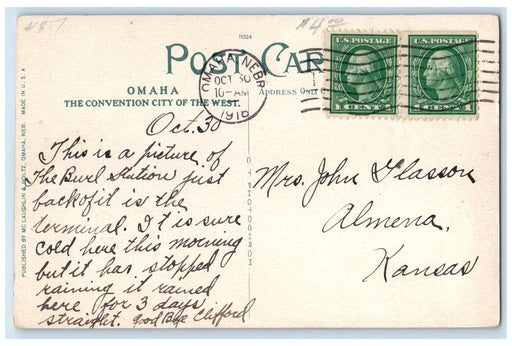 $4.00
11024
POST CAR
OMAHA
THE CONVENTION CITY OF THE WEST.
ADDRESS ONLY
OMAHA, NEBR.
OCT 30
10-AM
1916
U.S. POSTAGE
1 CENT 1
U.S. POSTAGE
1 CENT 1
PUBLISHED BY MC LAUGHLIN & HOLTZ, OMAHA, NEB. MADE IN U.S.A
Oct. 30
This is a picture of
The Burl Station just
back of it is the
terminal. It is sure
cold here this morning
but it has stopped
raining it rained
here for 3 days
straight. Good Bye Clifford
Mrs. John Glasson
Almena,
Kansas